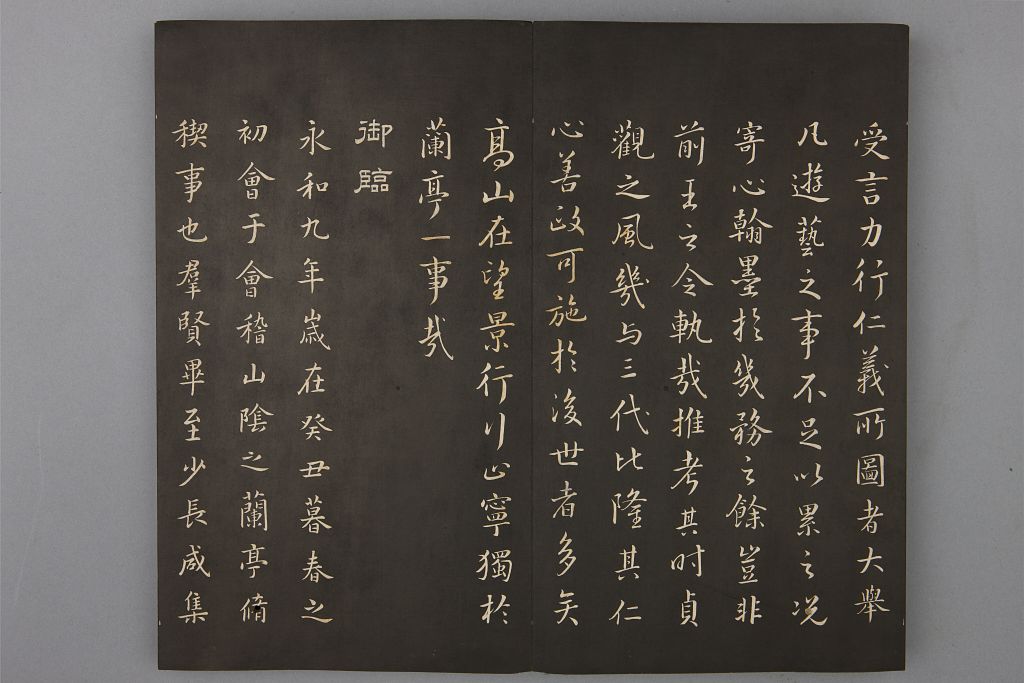 受言力行仁義所圖者大舉
凡遊藝之事不足以累之况
寄心翰墨扵幾務之餘豈非
前王之令軌哉推考其时貞
觀之風幾与三代比隆其仁
心善政可施扵後世者多矣
高山在望景行行止寧獨扵
蘭亭一事哉
御臨
永和九年嵗在癸丑暮春之
初會于會稽山陰之蘭亭脩
稧事也羣賢畢至少長咸集